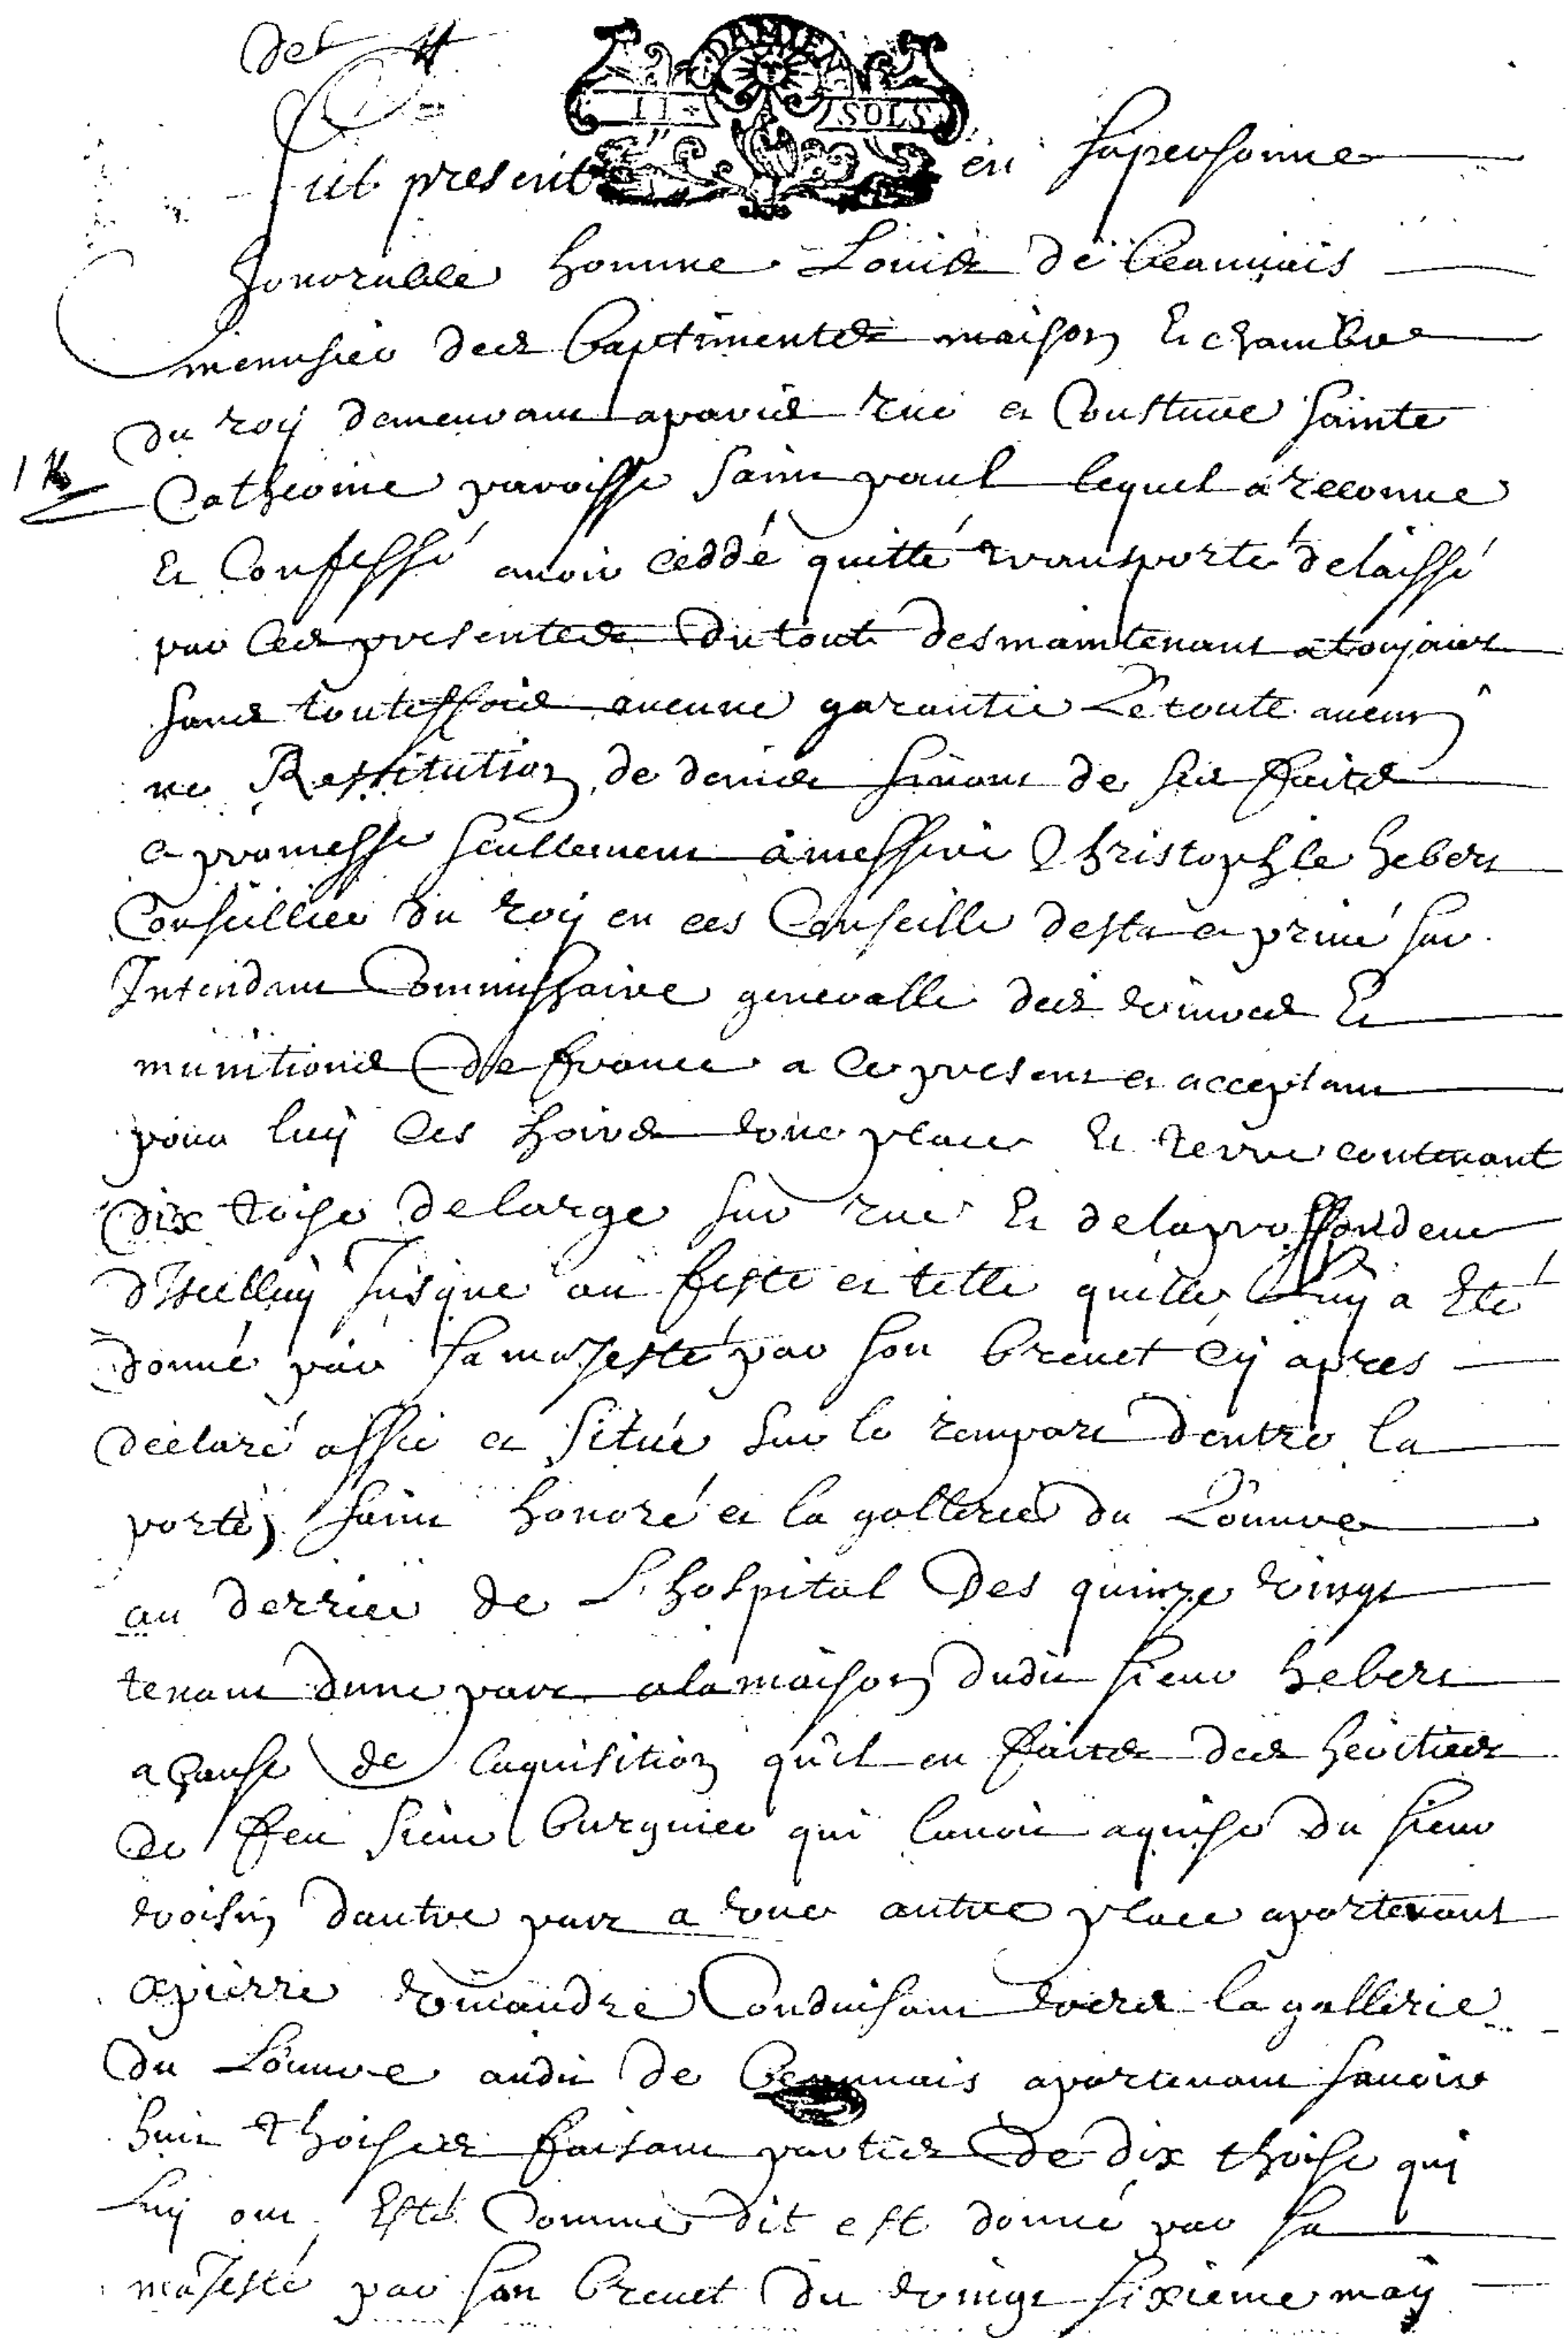 DAMIEN
II SOLS
fut present en sa personne
honorable homme Louis de beauuais
menusier des bastiments maison et chambre
du roy demeurant a paris rue et Cousture sainte
Catherine paroisse saint paul lequel a reconnu
et Confessé auoir ceddé quitté transporté delaissé
par ces presentes du tout des maintenant a toujours
sans touteffois aucune garantie de toutte aucun
ne Restitution de deniers sinont de ses faits
et promesse seullement a messire Christophle hebert
Conseiller du roy en ces Conseills destat et priué sur
Intendant Commissaire generalle des viures et
munitions de france a ce present et acceptant
pour luy ces hoirs vne place et terre contenant
dix toise de large sur rue et de la proffondeur
dIcelluy Jusque au feste et telle quelle luy a Eté
donné par sa maJesté par son breuet cy apres
declaré assis et situé sur le rempart dentre la
porte saint honoré et la gallerie du Louure
au derrier de Lhospital des quinze vingt
tenant dune part a la maison dudit sieur hebert
a cause de laquisition quil en faite des heritiers
de feu sieur burgnier qui lauoit aquise du sieur
voisin dautre part a vne autre place apartenant
a pierre Conduisant vers la gallerie
du Louure audit de beauuais apartenant sauoir
huit thoises faisant parties de dix thoise qui
luy ont Esté Comme dit est donné par sa
maJesté par son breuet du vingt sixieme may